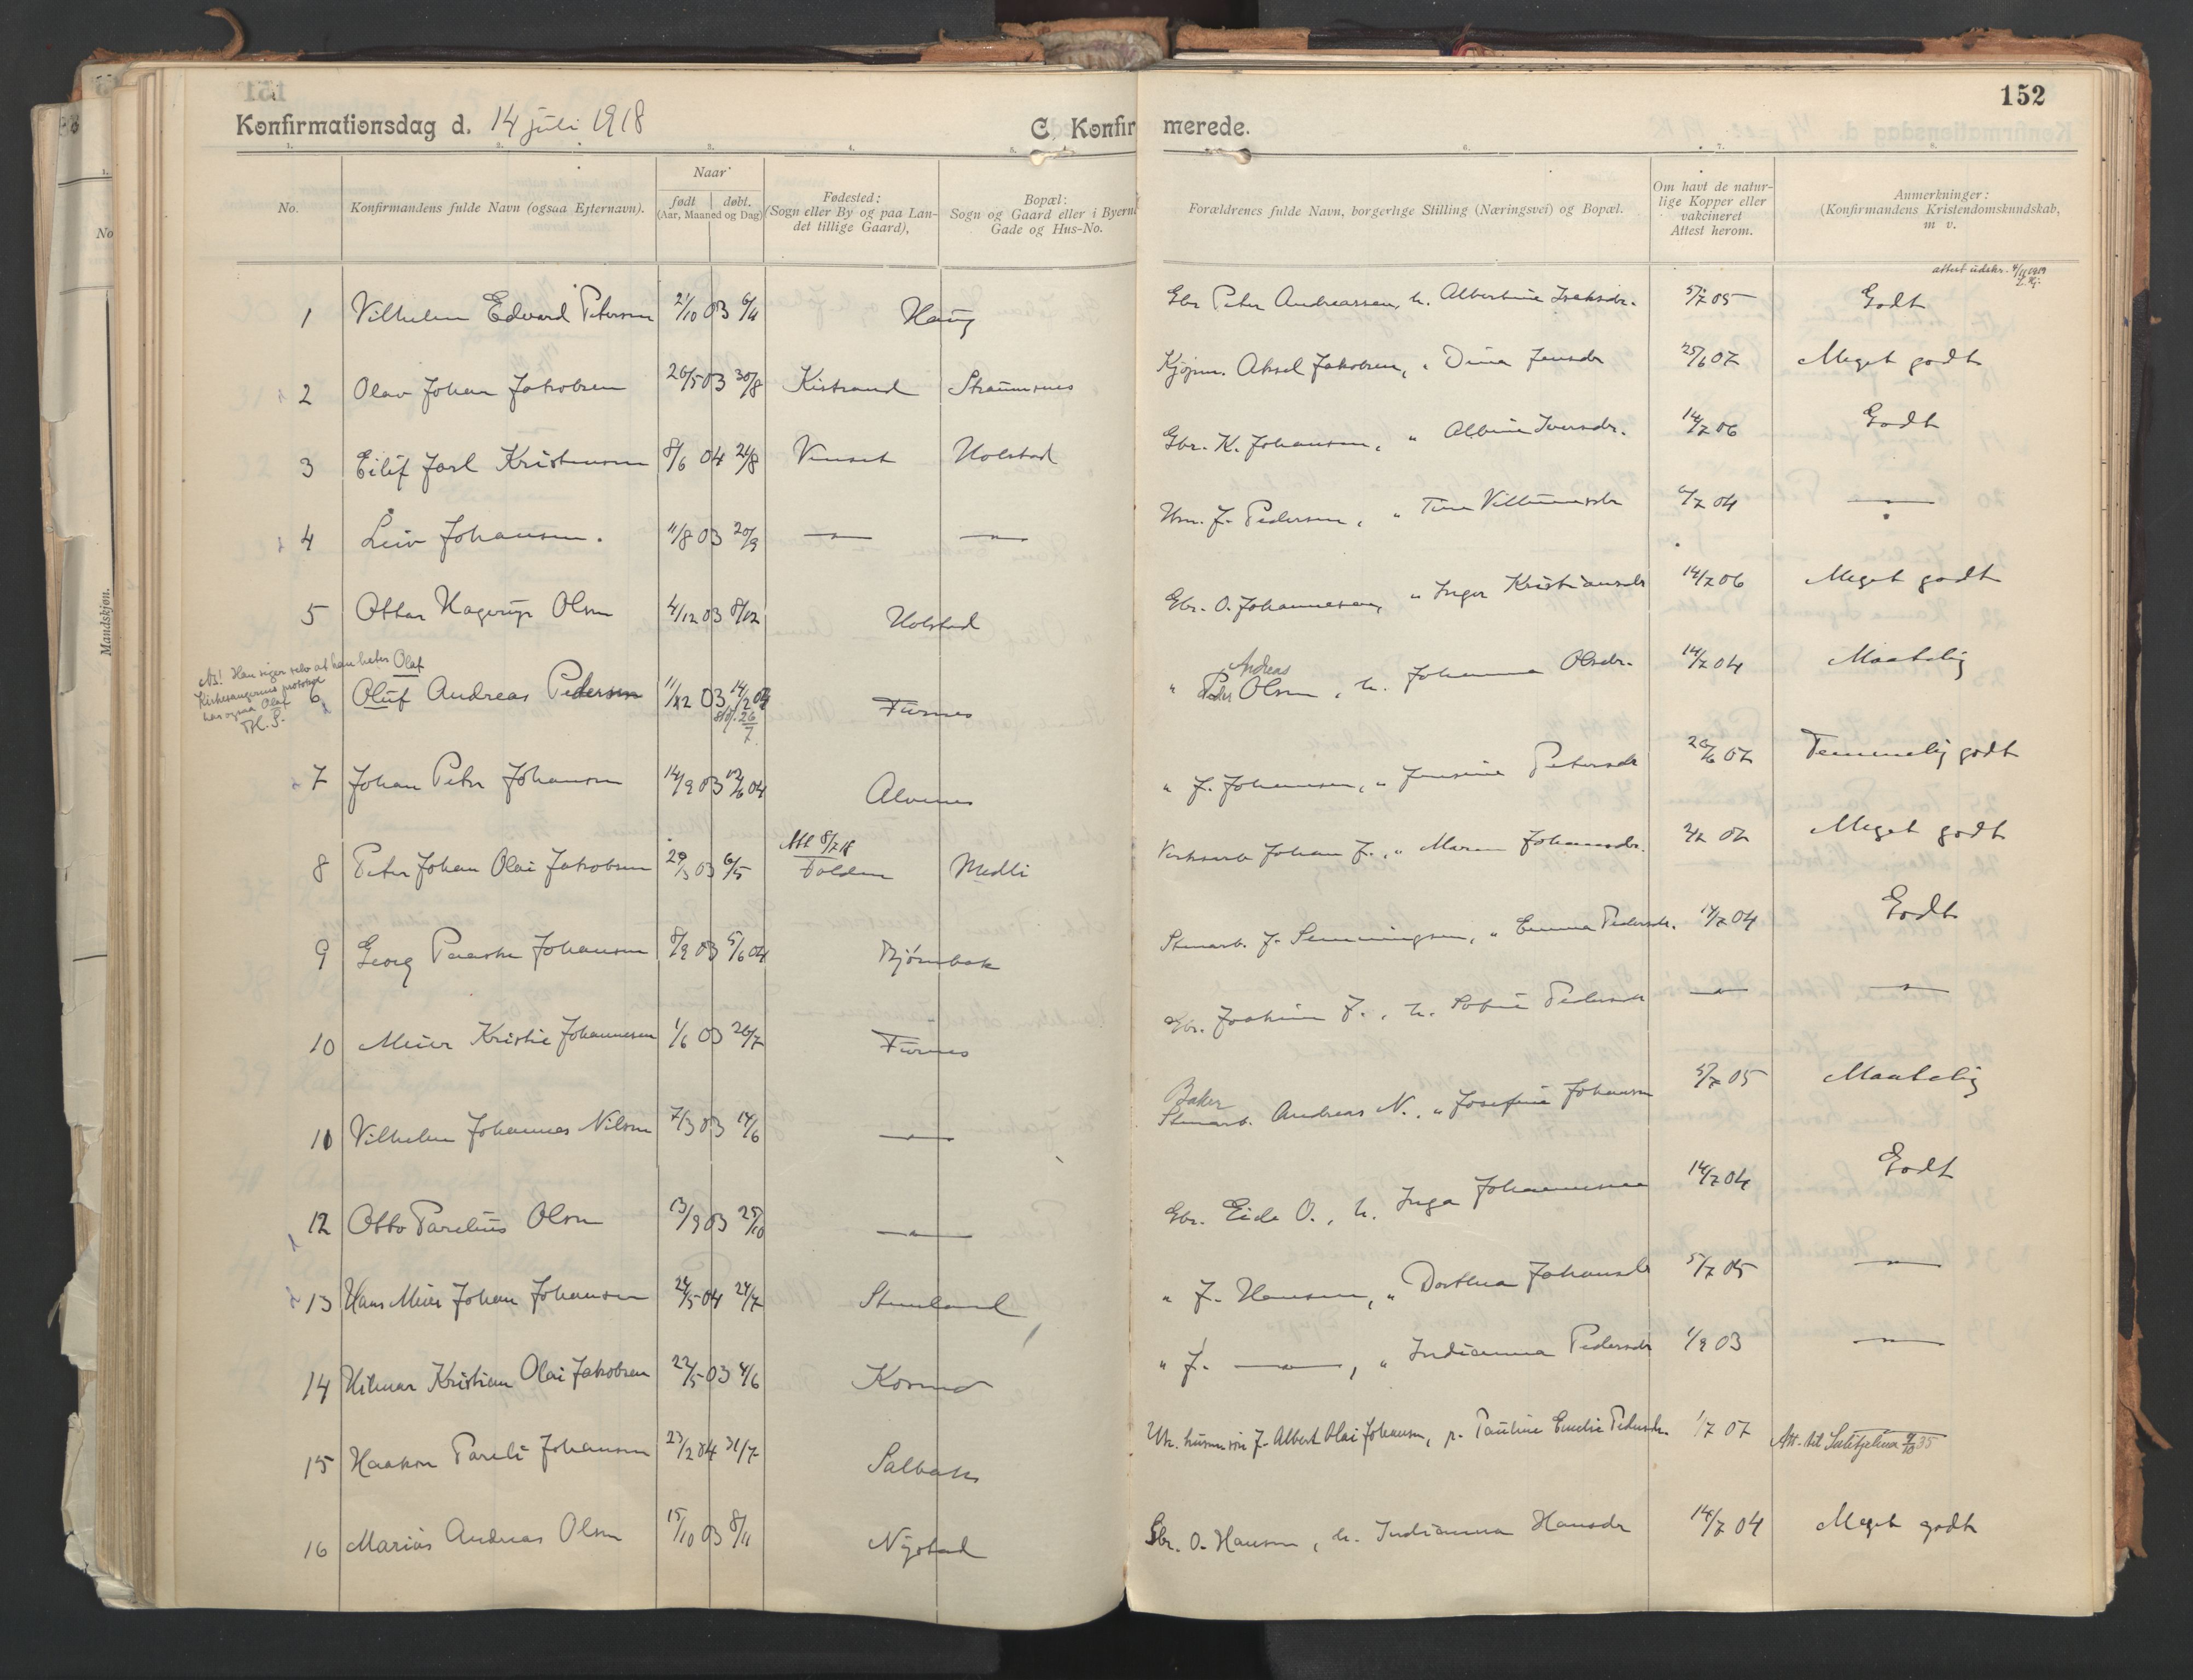 152
Konfirmationsdag d. 14 juli 1918
C. Konfirmerede.
1. 2. 3. 4. 5. 6. 7. 8.
No. | Konfirmandens fulde Navn (ogsaa Efternavn). | Naar født døbt. (Aar, Maaned og Dag) | Fødested: (Sogn eller By og paa Landet tillige Gaard), | Bopæl: Sogn og Gaard eller i Byerne Gade og Hus-No. | Forældrenes fulde Navn, borgerlige Stilling (Næringsvei) og Bopæl. | Om havt de naturlige Kopper eller vakcineret Attest herom. | Anmerkninger: (Konfirmandens Kristendomskundskab, m v.
attest udskr.
1 Vilhelm Edvard Petersen 21/10 03 6/11 Haug Gbr Peter Andreassen, h. Albertine Isaksdr. 5/7 05 Godt
2 Olav Johan Jakobsen 26/5 03 30/8 Kistrand Straumsnes Kjøpm. Aksel Jakobsen, " Dina Jensdr 25/6 07 Meget godt
3 Eilif Jarl Kristensen 8/6 04 21/8 Vinset Holstad Gbr. K. Johansen, " Albine Iversdr. 14/7 06 Godt
4 Leiv Johansen. 11/8 03 20/9 — — Hm. J. Pedersen, " Tina Villumsdr 6/7 04 —
5 Ottar Hagerup Olsen 4/12 03 8/12 Holstad Gbr. O. Johannesen, " Inger Kristiansdr 14/7 06 Meget godt
Nb! Han siger selv at han heter Olaf
Kirkesangerens protokol
har ogsaa Olaf
H. S.
6 Oluf Andreas Pedersen 11/12 03 14/2 04 Furnes " Peder Andreas Olsen, h. Johanna Olsdr. 14/7 04 Maatelig
26/7
7 Johan Peter Johansen 14/9 03 12/6 04 Alvenes " J. Johansen, " Jensine Petersdr 20/6 07 Temmelig godt
Att 8/7 18
8 Peter Johan Olai Jakobsen 29/3 03 6/5 Folden Medli Verksarb Johan J., " Maren Johansdr. 2/2 07 Meget godt
9 Georg Paaske Johansen 8/9 03 5/6 04 Bjørnbak Stenarb. J. Semmingsen, " Emma Pedersdr. 14/7 04 Godt
10 Meier Kristie Johannesen 1/6 03 26/7 Furnes Gbr. Joakim J., h. Sofie Pedersdr — —
11 Vilhelm Johannes Nilsen 7/3 03 14/6 — Baker Stenarb. Andreas N., " Josefine Johansen 5/7 05 Maatelig
12 Otto Parelius Olsen 13/9 03 25/10 — Gbr. Eide O., h. Inga Johannesen 14/7 04 Godt
13 Hans Meier Johan Johansen 24/5 04 24/7 Stenland " J. Hansen, " Dorthea Johansdr 5/7 05 —
14 Hilmar Kristian Olai Jakobsen 22/5 03 4/6 Korsnes " J. —, " Indianna Pedersdr 1/9 03 —
15 Haakon Pareli Johansen 23/2 04 31/7 Salbak Uk. husm søn J. Albert Olai Johansen, p. Pauline Emelie Pedersdr. 1/7 07 —
Att. til Sulitjelma 9/10 35
16 Marius Andreas Olsen 15/10 03 8/11 Nystad Gbr. O. Hansen, h. Indianna Hansdr 14/7 04 Meget godt
Mandskjøn.